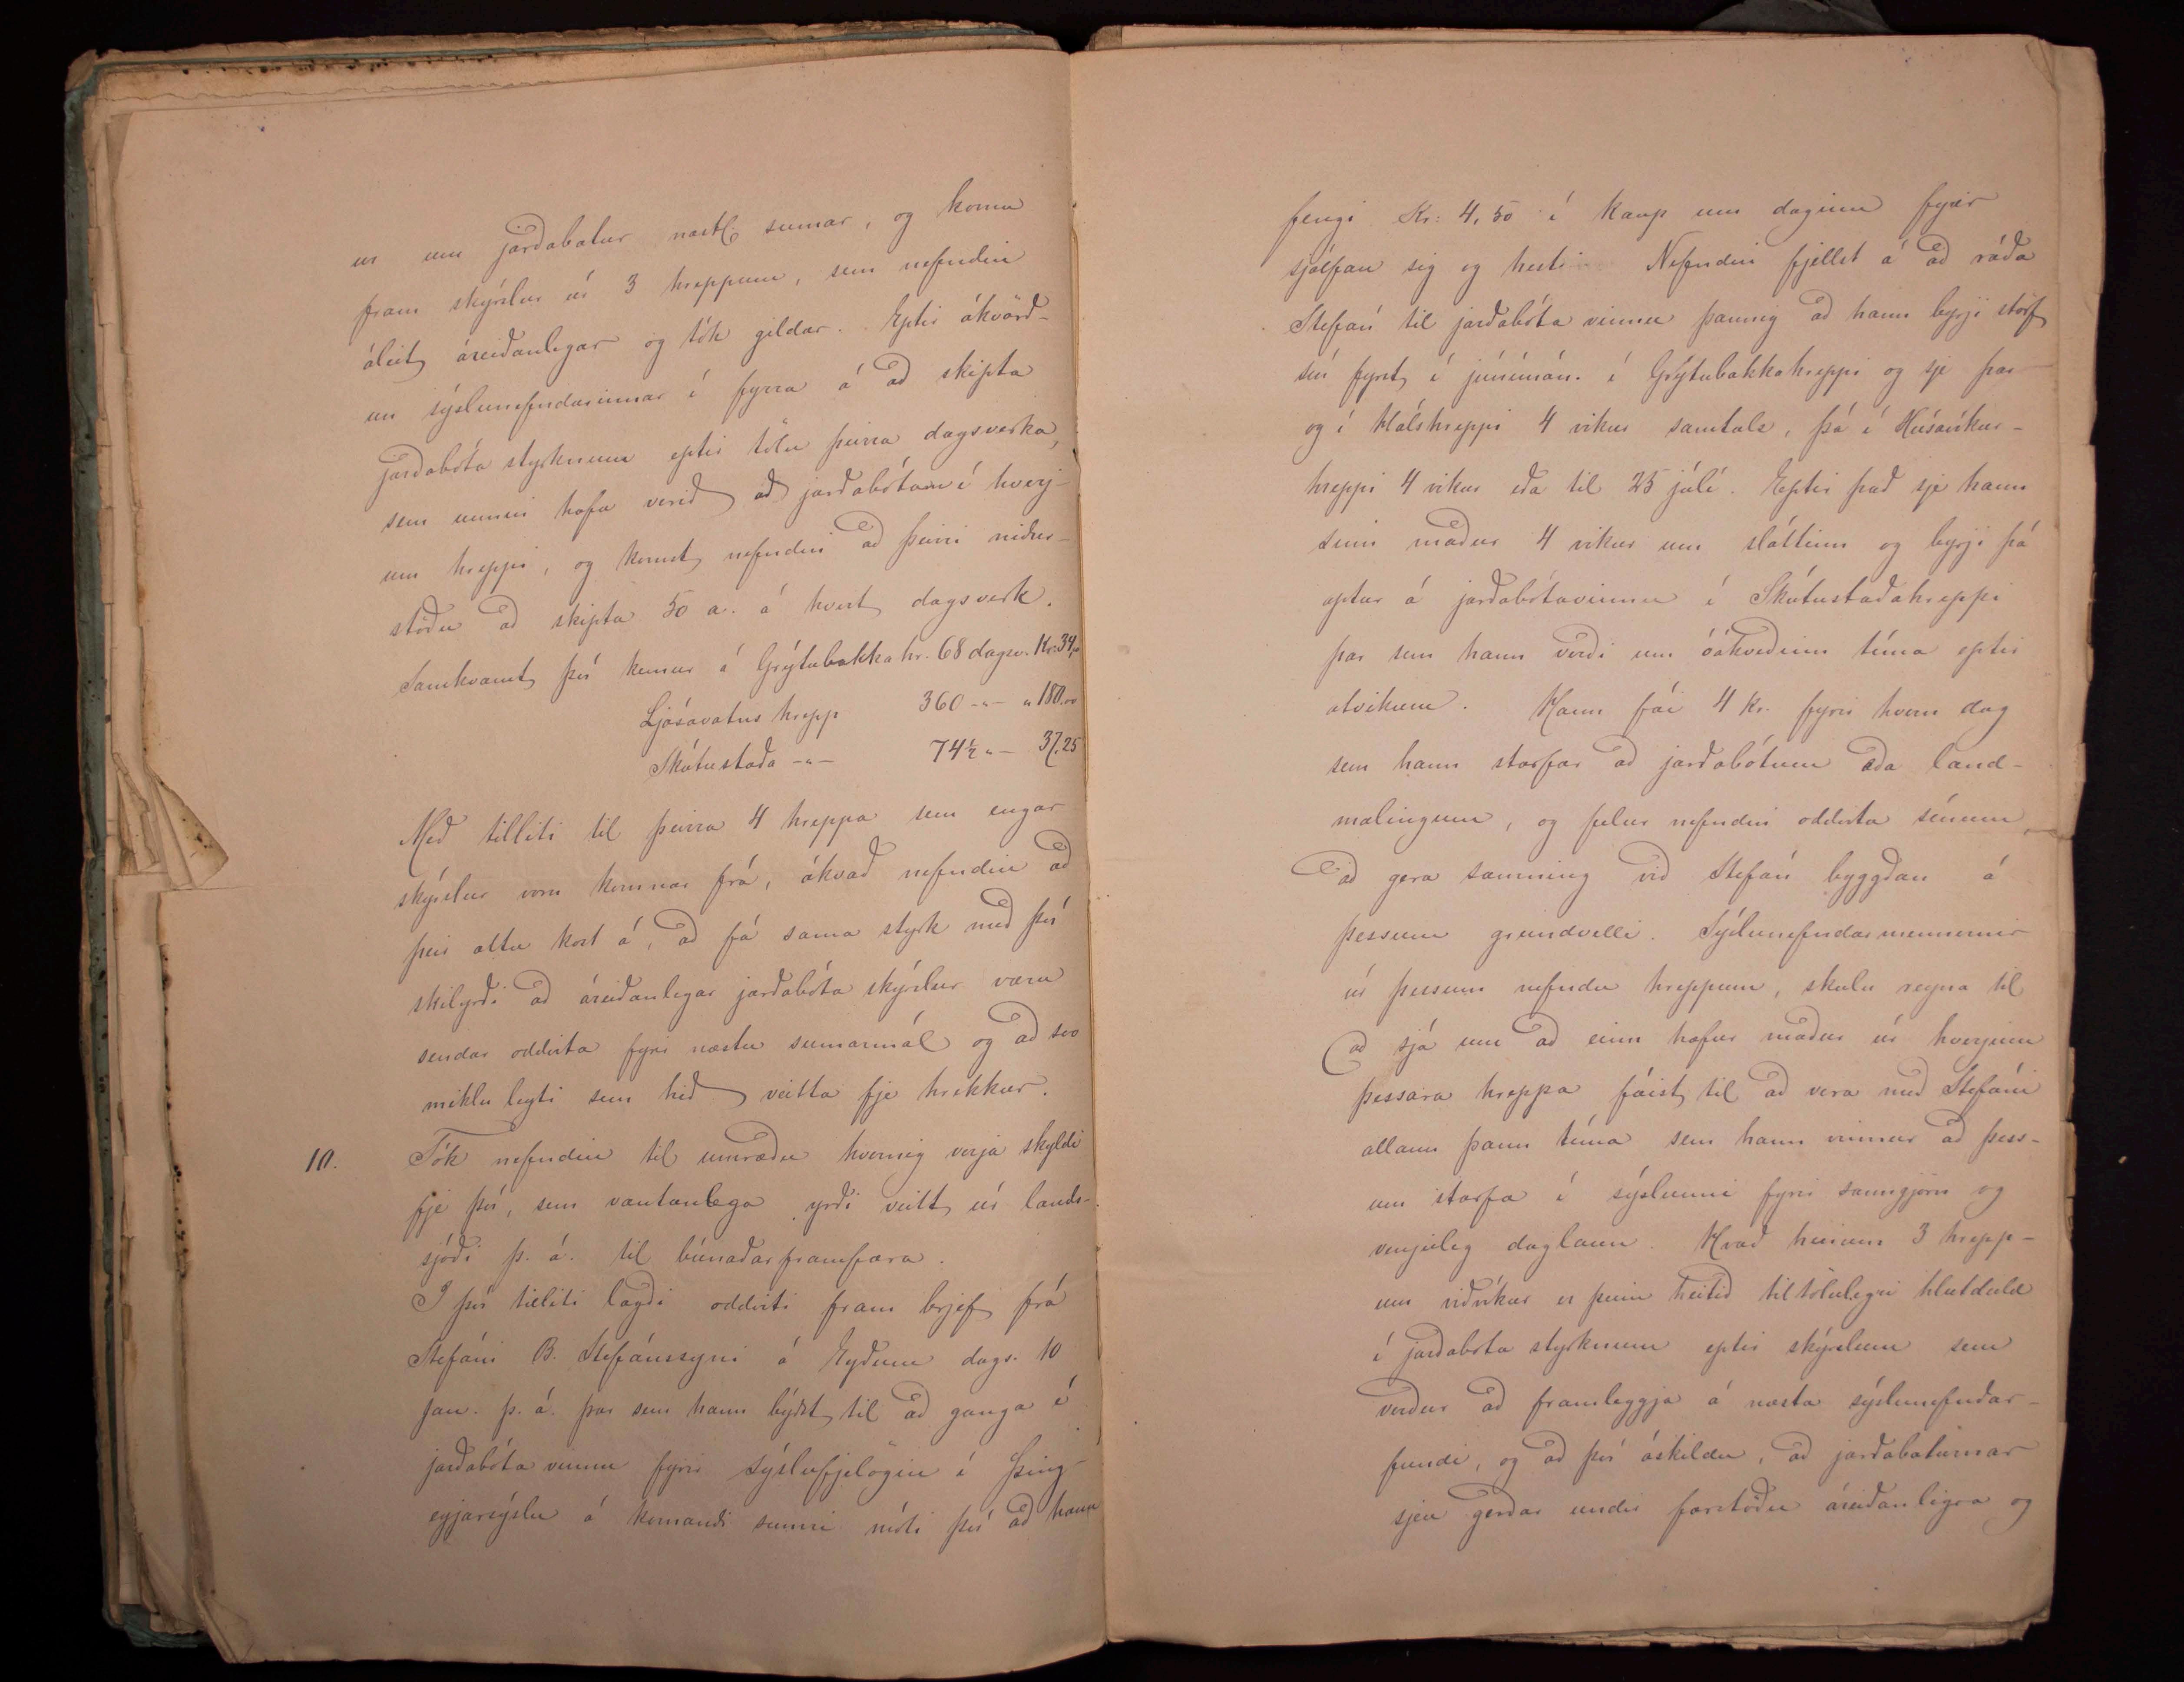 ur um jarðabætur næstl. sumar, og komu
fram skýrslur úr 3 hreppum, sem nefndin
áleit áreiðanlegar og tók gildar. Eptir ákvörð-
un sýslunefndarinnar í fyrra á að skipta
jarðabóta styrknum eptir tölu þeirra dagsverka,
sem unnin hafa verið að jarðabótum í hverj-
um hreppi, og komst nefndin að þeirri niður-
stöðu að skipta 50 a. á hvert dagsverk.
Samkvæmt því kemur á Grýtubakka hr. 68 dagsv. Kr. 34,00
Ljósavatns hrepp 360 -"- " 180.00
Skútustaða -"- 74½ "- 37.25
Með tilliti til þeirra 4 hreppa sem engar
skýrslur voru komnar frá, ákvað nefndin að
þeir ættu kost á, að fá sama styrk með því
skilyrði að áreiðanlegar jarðabóta skýrslur væru
sendar oddvita fyrir næstu sumarmál og að svo
miklu leyti sem hið veitta fje hrekkur.
10. Tók nefndin til umræðu hvernig verja skyldi
fje því, sem væntanlega yrði veitt úr lands-
sjóði þ. á. til búnaðarframfara.
I því tilliti lagði oddviti fram brjef frá
Stefáni B. Stefánssyni á Eyðum dags. 10
jan. þ. á. þar sem hann býðst til að ganga í
jarðabóta vinnu fyrir sýslufjelögin í Þing-
eyjarsýslu á komandi sumri móti því að hann
fengi Kr: 4,50 í kaup um daginn fyrir
sjálfan sig og hesti Nefndin fjellst á að ráða
Stefán til jarðabóta vinnu þannig að hann byrji störf
sín fyrst í júnímán. í Grýtubakkahreppi og sje þar
og í Hálshreppi 4 vikur samtals, þá í Húsavíkur-
hreppi 4 vikur eða til 25 júlí. Eptir það sje hann
sinn maður 4 vikur um sláttinn og byrji þá
aptur á jarðabótavinnu í Skútustaðahreppi
þar sem hann verði um óákveðinn tíma eptir
atvikum. Hann fái 4 Kr. fyrir hvern dag
sem hann starfar að jarðabótum eða land-
mælingum, og felur nefndin oddvita sínum
að gera samning við Stefán byggðan á
þessum grundvelli. Sýslunefndarmennirnir
úr þessum nefndu hreppum, skulu reyna til
að sjá um að einn hæfur maður úr hverjum
þessara hreppa fáist til að vera með Stefáni
allann þann tíma sem hann vinnur að þess-
um starfa í sýslunni fyrir sanngjörn og
venjuleg daglaun. Hvað hinum 3 hrepp-
um viðvíkur er þeim heitið tiltölulegri hlutdeild
í jarðabóta styrknum eptir skýrslum sem
verður að framleggja á næsta sýslunefndar-
fundi, og að því áskildu, að jarðabæturnar
sjeu gerðar undir forstöðu áreiðanlegra og